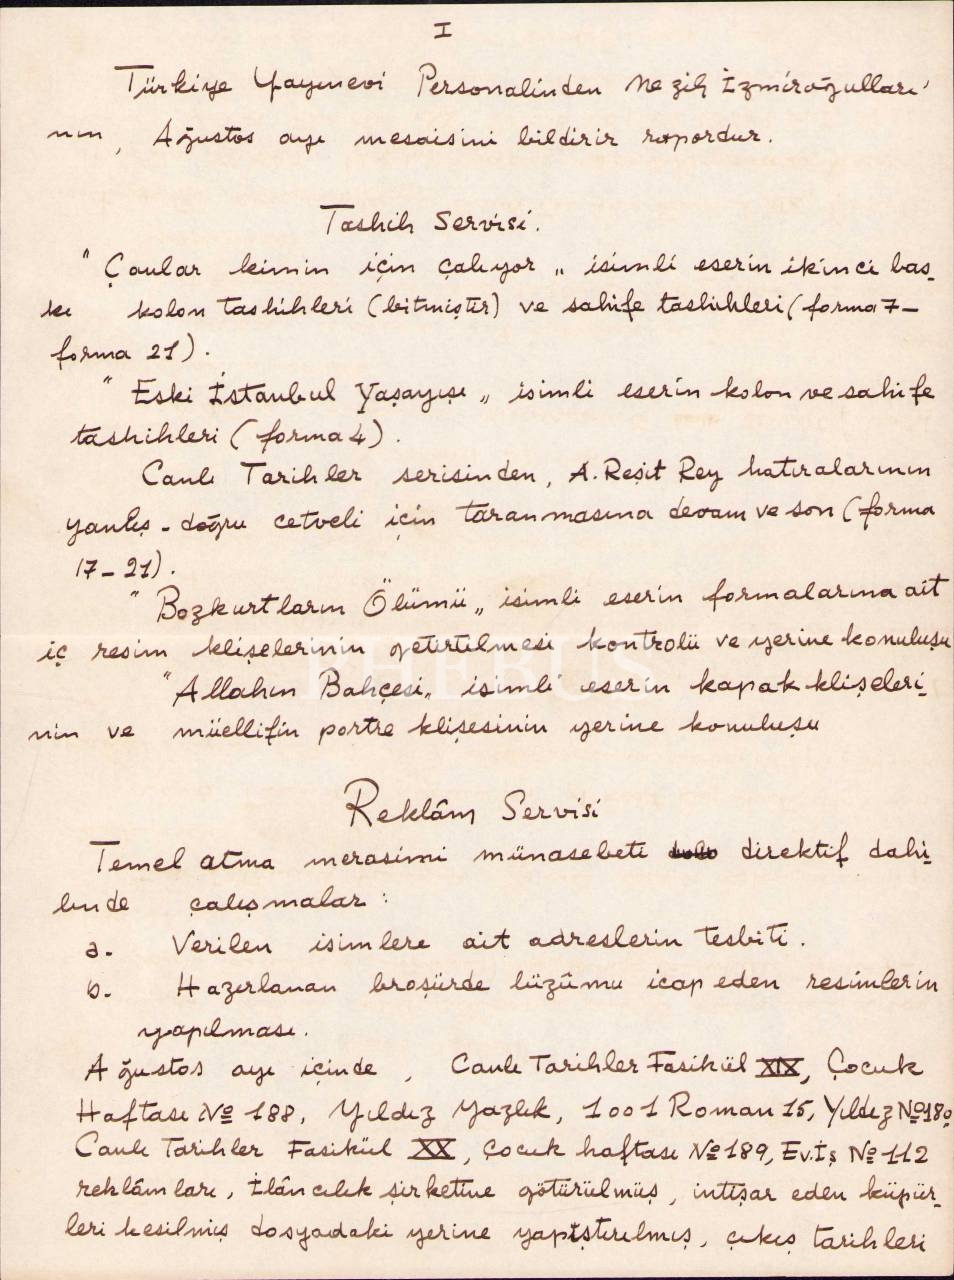 I
Türkiye Yayınevi Personalinden Nezih İzmiroğulları'
nın, Ağustos ayı mesaisini bildirir rapordur.
Tashih Servisi.
"Çanlar kimin için çalıyor„ isimli eserin ikinci bas-
kı kolon tashihleri (bitmiştir) ve sahife tashihleri (forma 7-
forma 21).
"Eski İstanbul Yaşayışı„ isimli eserin kolon ve sahife
tashihleri (forma 4).
Canlı Tarihler serisinden, A. Reşit Rey hatıralarının
yanlış-doğru cetveli için taranmasına devam ve son (forma
17-21).
"Bozkurtların Ölümü„ isimli eserin formalarına ait
iç resim klişelerinin getirtilmesi kontrolü ve yerine konuluşu
"Allahın Bahçesi„ isimli eserin kapak klişeleri-
nin ve müellifin portre klişesinin yerine konuluşu
PHEBUS
Reklâm Servisi
Temel atma merasimi münasebeti direktif dahi-
linde çalışmalar:
a. Verilen isimlere ait adreslerin tesbiti.
b. Hazırlanan broşürde lüzûmu icap eden resimlerin
yapılması.
Ağustos ayı içinde, Canlı Tarihler Fasikül XIX, Çocuk
Haftası No 188, Yıldız Yazlık, 1001 Roman 15, Yıldız No 180
Canlı Tarihler Fasikül XX, Çocuk haftası No 189, Ev.İş No 112
reklâmları, İlâncılık şirketine götürülmüş, intişar eden küpür-
leri kesilmiş dosyadaki yerine yapıştırılmış, çıkış tarihleri